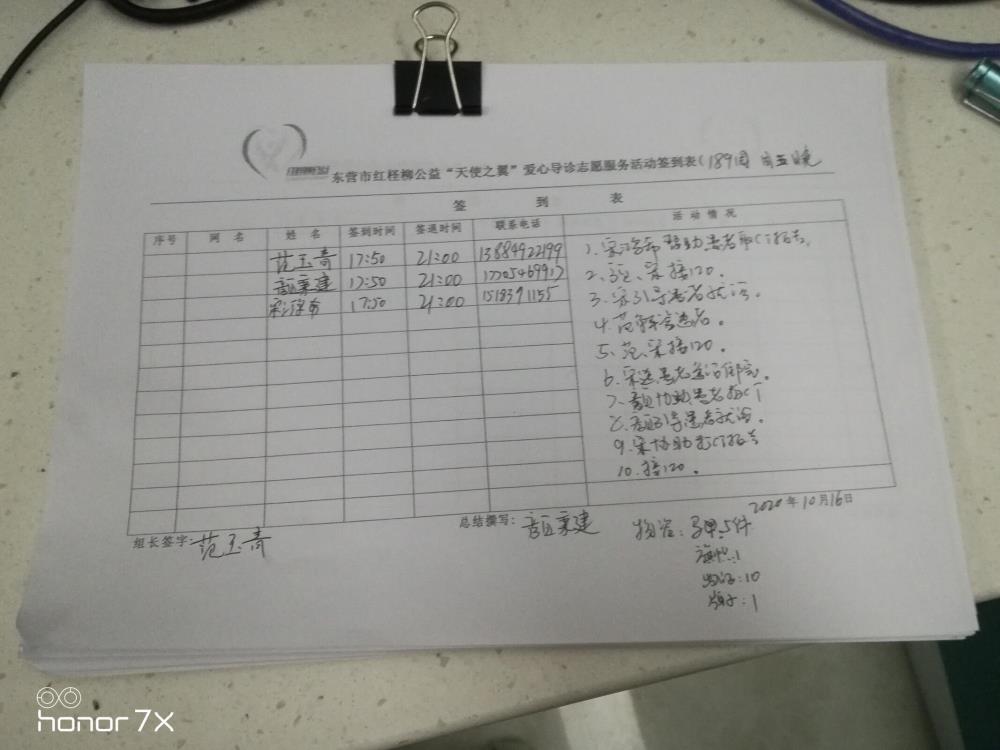 东营市红柽柳公益“天使之翼”爱心导诊志愿服务活动签到表(189周 周五晚
签 到 表
序号 网 名 姓 名 签到时间 签退时间 联系电话 活 动 情 况
范玉青 17:50 21:00 13884922199
17:50 21:00 17705469917
17:50 21:00 1518391155
1.宋 帮助患者取CT报告。
2. 宋接120。
3.宋引导患者就诊。
4.范 患者。
5.范、宋接120。
6.宋送患者 住院。
7. 协助患者 CT
8. 引导患者就诊。
9.宋协助 CT报告
10.接120。
2020年10月16日
组长签字:范玉青
总结撰写:
物资:马甲:5件
旗帜:1
:10
:1
honor 7X